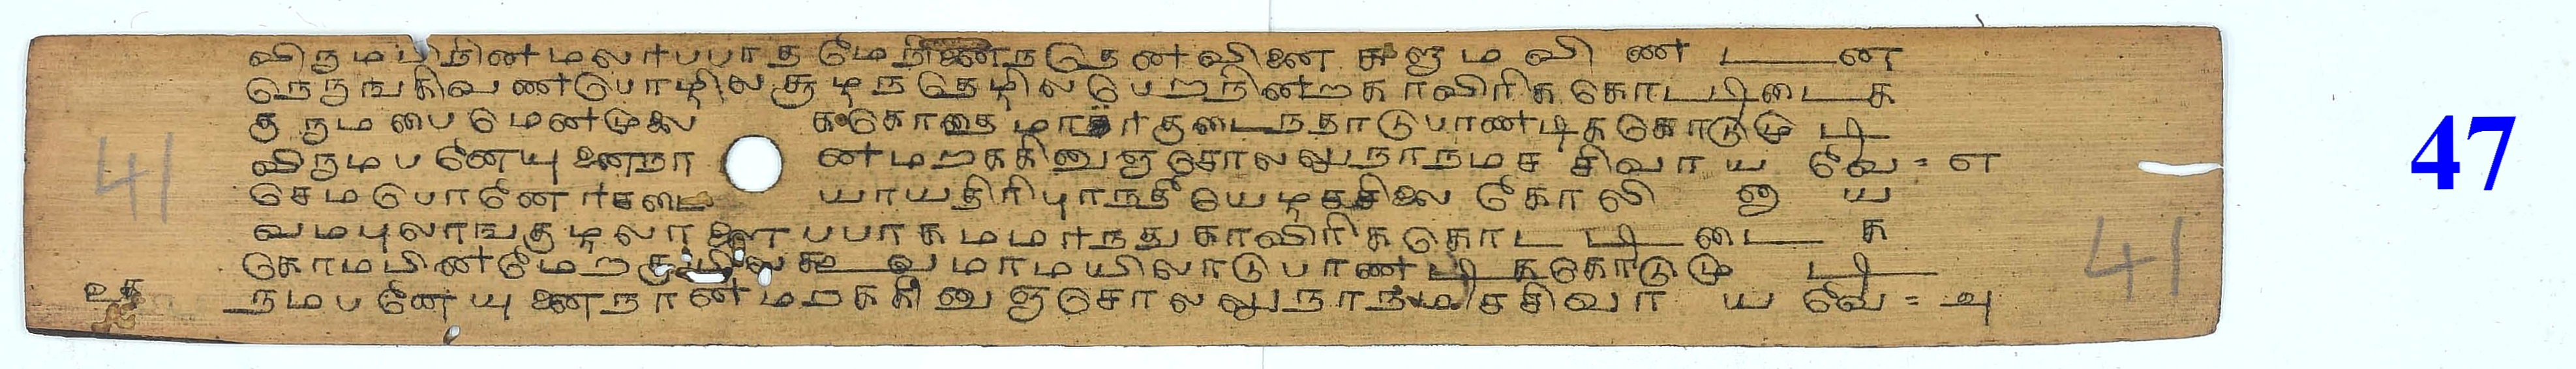 விருமபிநினமலரபபாதமேநினைநதேனவினைகளுமவிணடன
நெருஙகிவணபொழிலசூழநதெழிலபெறநினறகாவிரிககோடடிடைக
குருமபைமெனமுலை ககோதைமாதரகுடைநதாடுபாணடிககொடுமுடி
விருமபனேயுனைநா னமறககினுஞசொலலுநாநமசசிவாயவே = எ
செமபொனேரசடை யாயதிரிபுரநதீயெழசசிலைகோலினய
வமபுலாஙகுழலாளைபபாகமமரநதுகாவிரிககோடடிடைக
கொமபினமேறகுயிலகூவமாமயிலாடுபாணடிககொடுமுடி
நமபனேயுனைநானமறககினுஞசொலலுநாநமசசிவாயவே = அ
உக
41
41
47